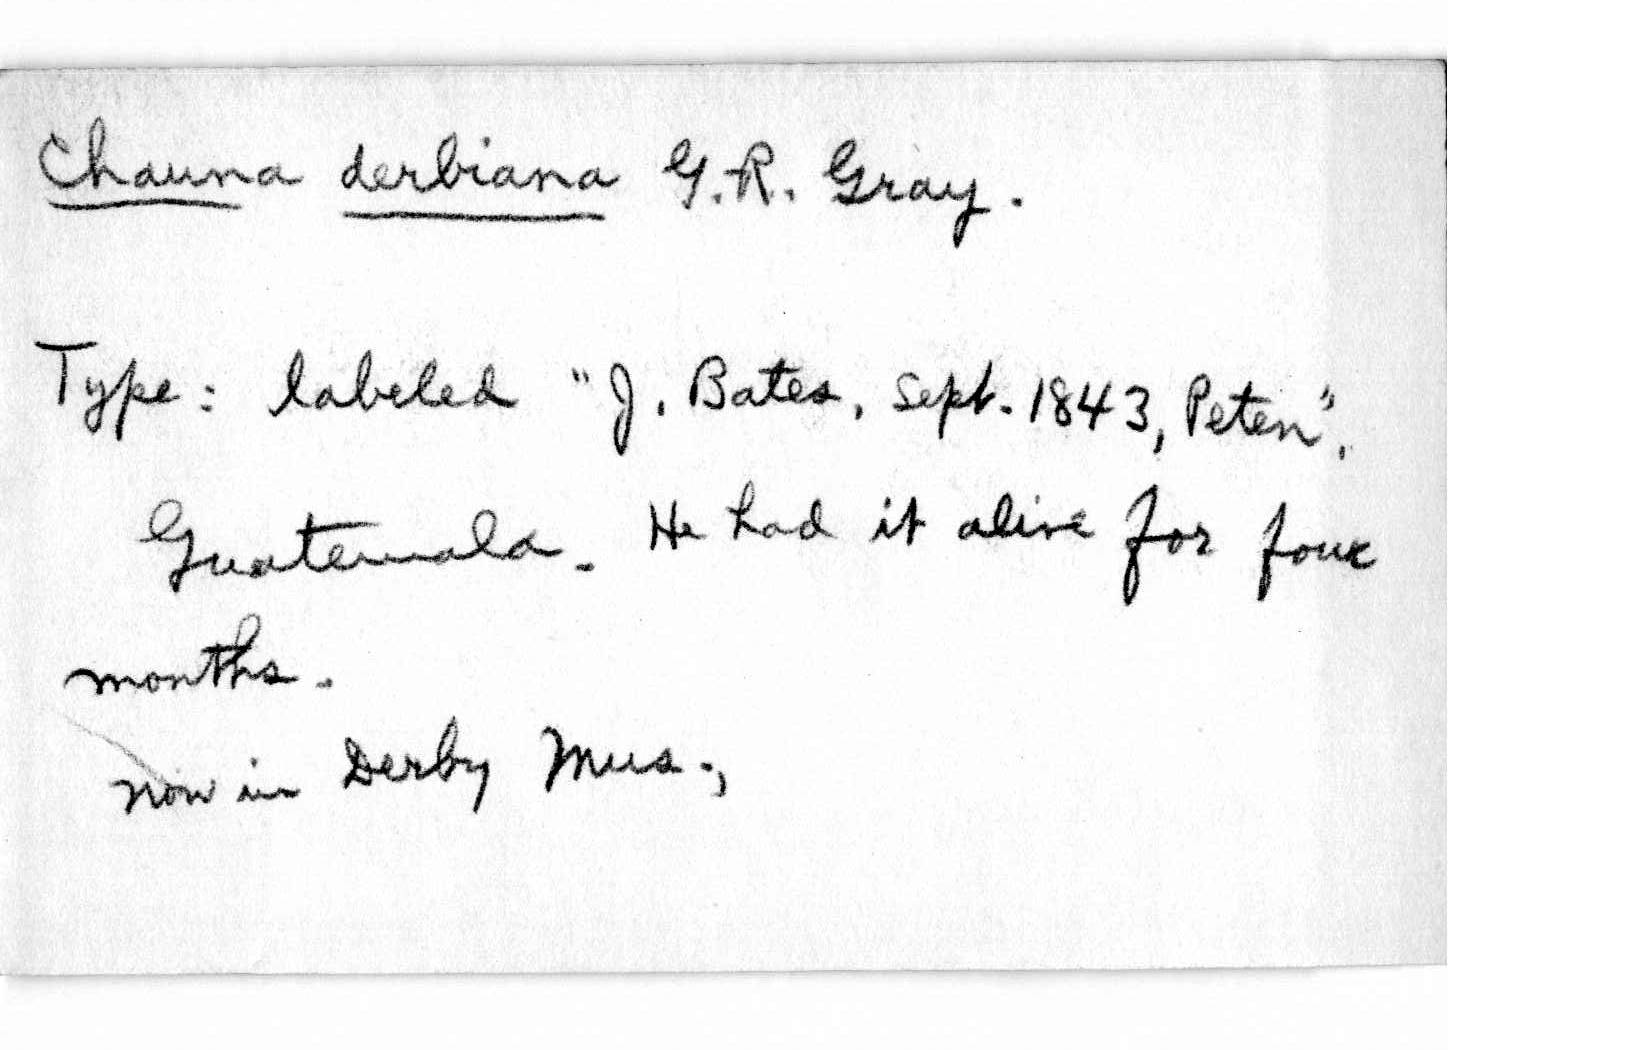 Chauna derbiana G.R. Gray.
Type: labeled "J. Bates, Sept. 1843, Peten",
Guatemala. He had it alive for four
months.
now in Derby Mus.,